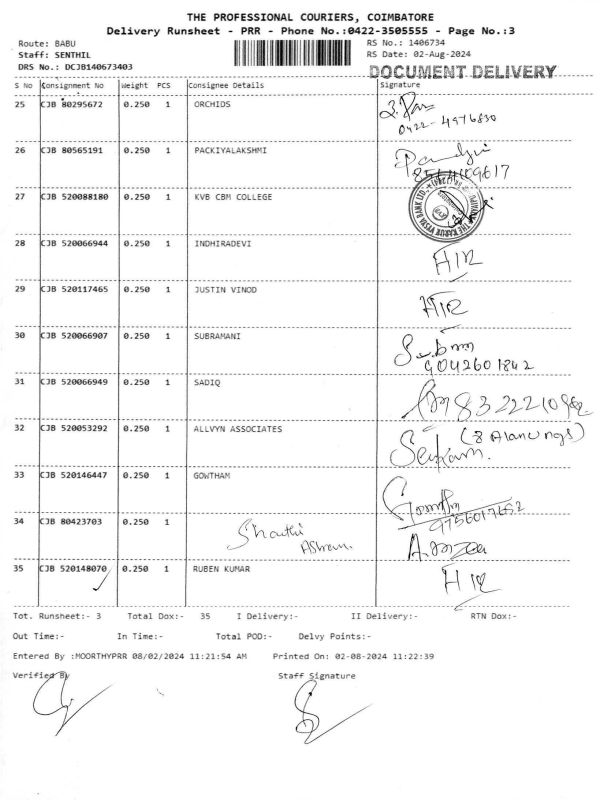 THE PROFESSIONAL COURIERS, COIMBATORE
Delivery Runsheet - PRR - Phone No.:0422-3505555 - Page No.:3
Route: BABU RS No.: 1406734
Staff: SENTHIL RS Date: 02-Aug-2024
DRS No.: DCJB140673403 DOCUMENT DELIVERY
S No Consignment No Weight PCS Consignee Details Signature
25 CJB 80295672 0.250 1 ORCHIDS
0422-4976830
26 CJB 80565191 0.250 1 PACKIYALAKSHMI
27 CJB 520088180 0.250 1 KVB CBM COLLEGE
28 CJB 520066944 0.250 1 INDHIRADEVI
29 CJB 520117465 0.250 1 JUSTIN VINOD
30 CJB 520066907 0.250 1 SUBRAMANI
9042601842
31 CJB 520066949 0.250 1 SADIQ
32 CJB 520053292 0.250 1 ALLVYN ASSOCIATES
33 CJB 520146447 0.250 1 GOWTHAM
34 CJB 80423703 0.250 1 Shanthi
Ashram
35 CJB 520148070 0.250 1 RUBEN KUMAR
Tot. Runsheet:- 3 Total Dox:- 35 I Delivery:- II Delivery:- RTN Dox:-
Out Time:- In Time:- Total POD:- Delvy Points:-
Entered By :MOORTHYPRR 08/02/2024 11:21:54 AM Printed On: 02-08-2024 11:22:39
Verified By Staff Signature